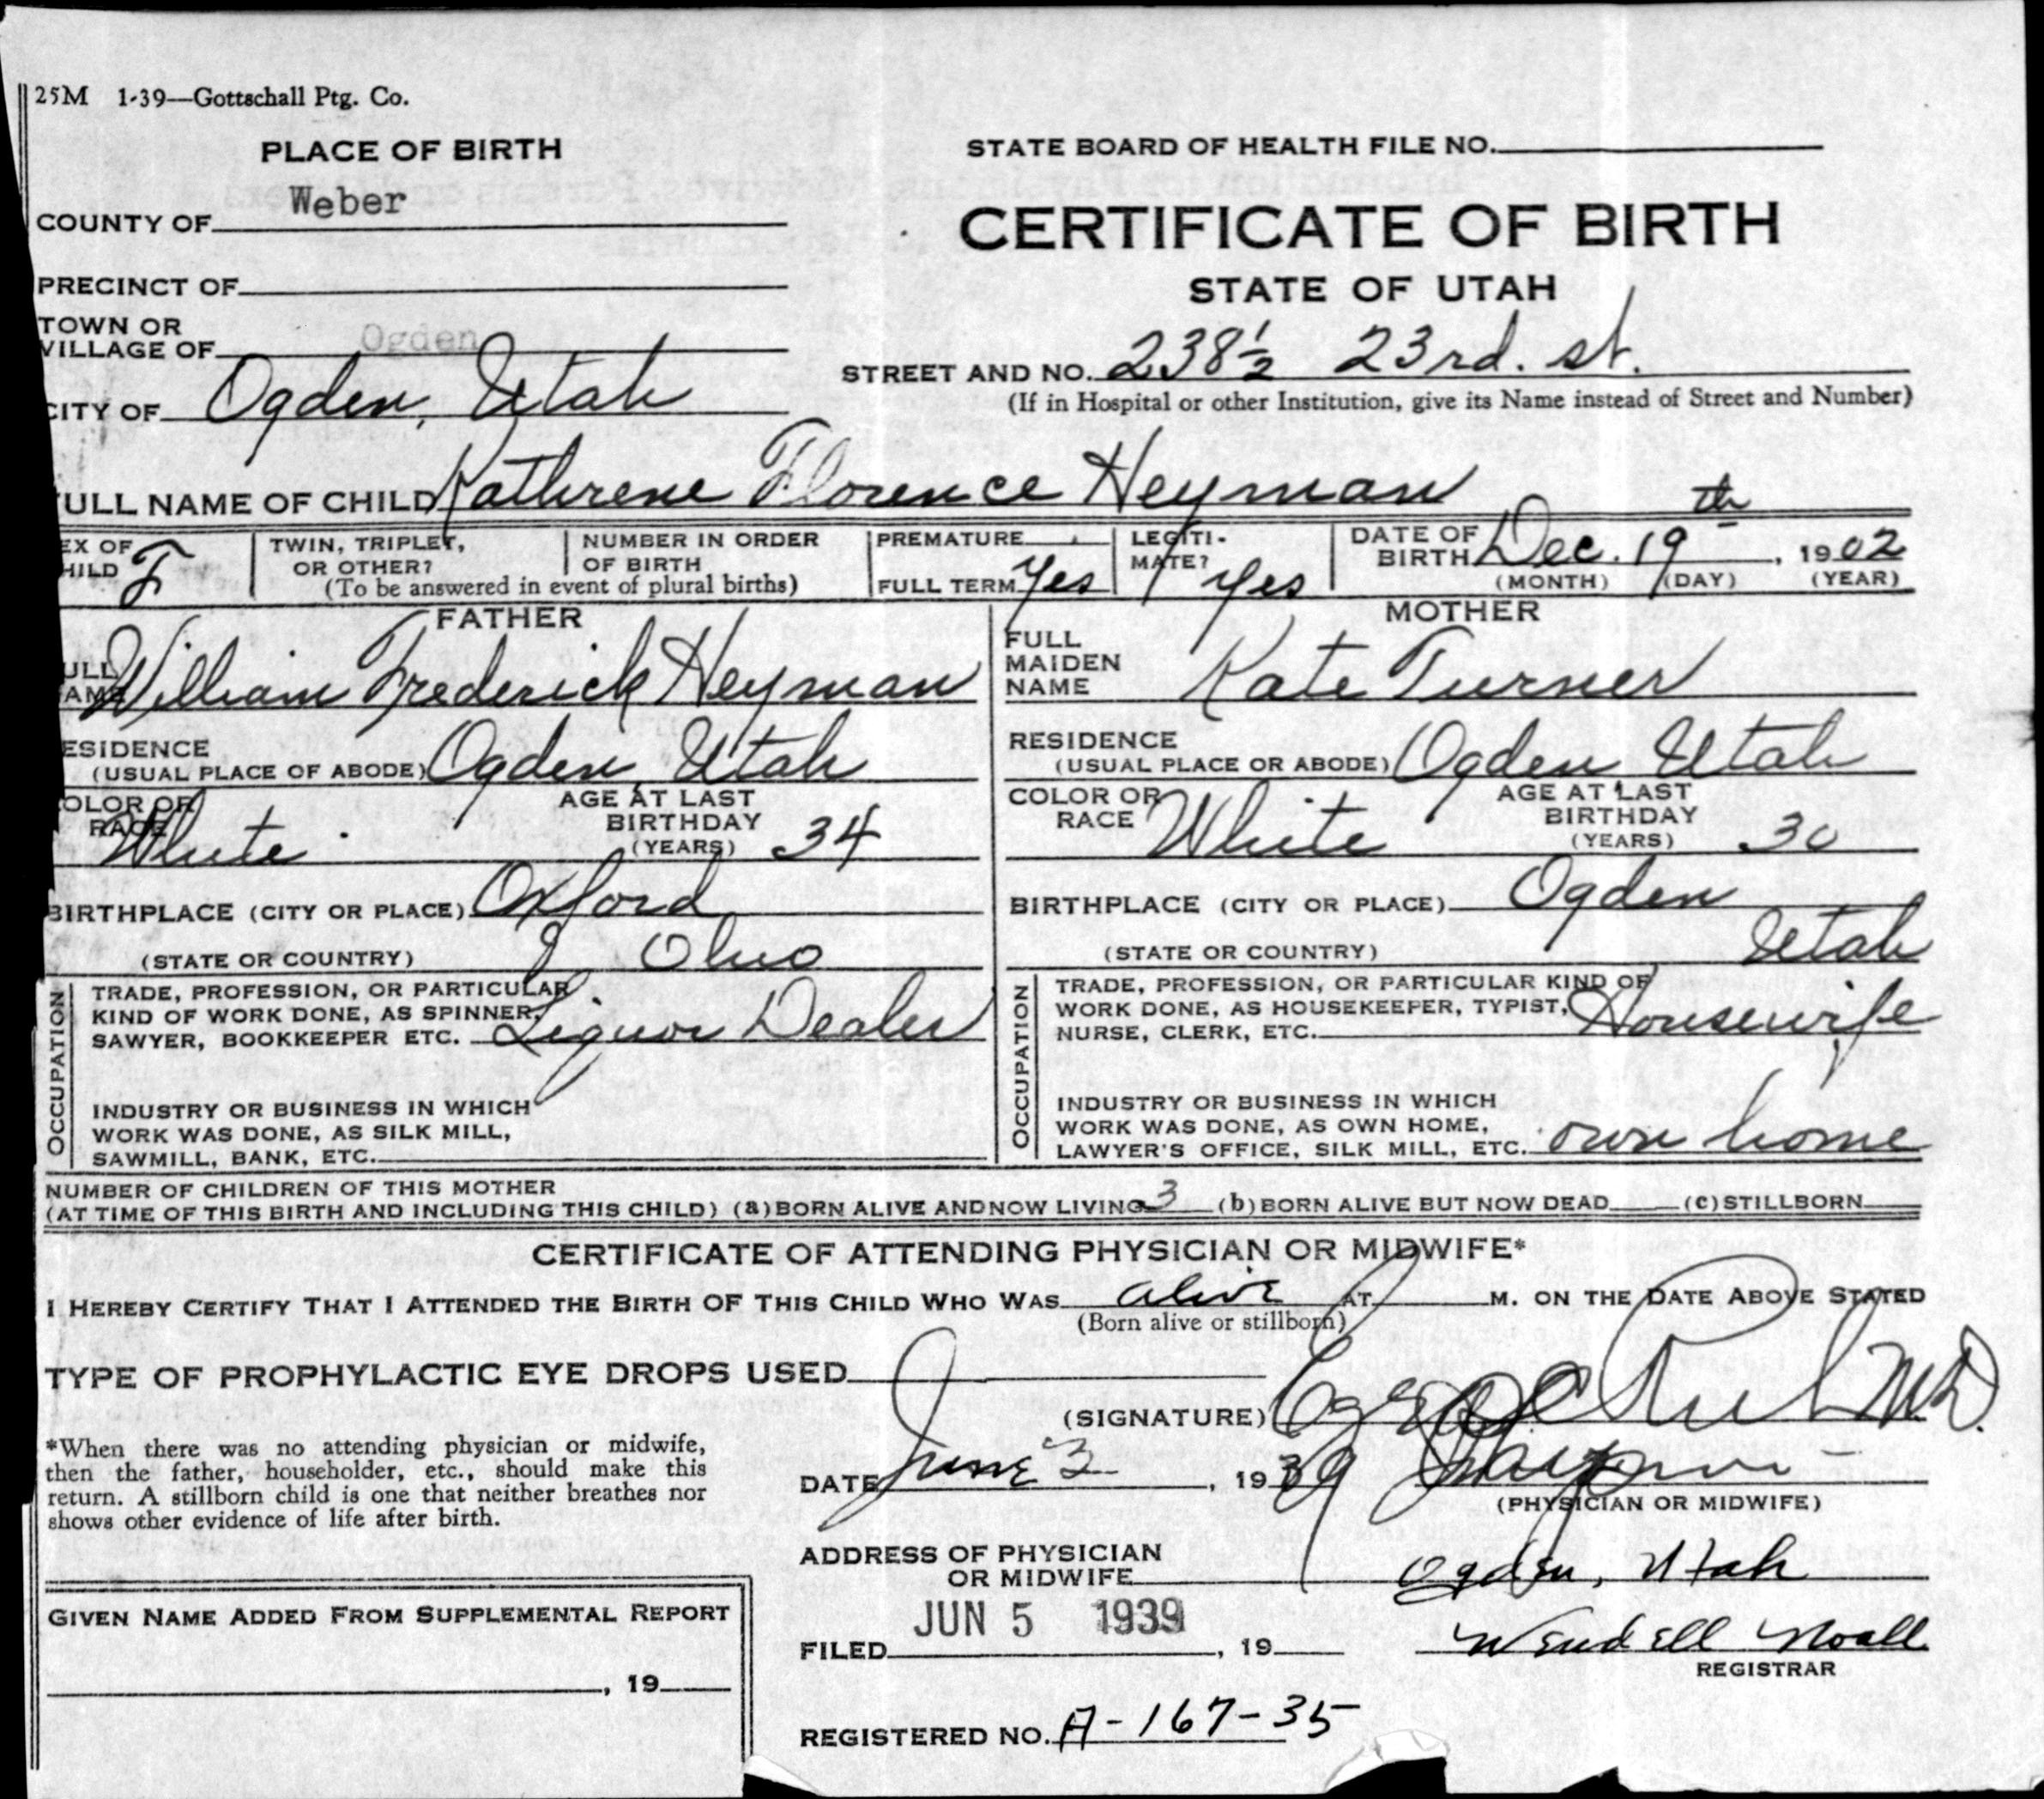 25M 1-39—Gottschall Ptg. Co.
PLACE OF BIRTH
COUNTY OF Weber
PRECINCT OF
TOWN OR
VILLAGE OF Ogden
CITY OF Ogden, Utah
STATE BOARD OF HEALTH FILE NO.
CERTIFICATE OF BIRTH
STATE OF UTAH
STREET AND NO. 238½ 23rd. st.
(If in Hospital or other Institution, give its Name instead of Street and Number)
ULL NAME OF CHILD Kathrene Florence Heyman
EX OF
HILD F
TWIN, TRIPLET,
OR OTHER?
NUMBER IN ORDER
OF BIRTH
(To be answered in event of plural births)
PREMATURE
FULL TERM Yes
LEGITI-
MATE? Yes
DATE OF
BIRTH Dec. 19th, 1902
(MONTH) (DAY) (YEAR)
FATHER
ULL
AME William Frederick Heyman
ESIDENCE
(USUAL PLACE OF ABODE) Ogden, Utah
OLOR OR
RACE White
AGE AT LAST
BIRTHDAY
(YEARS) 34
BIRTHPLACE (CITY OR PLACE) Oxford
(STATE OR COUNTRY) Ohio
OCCUPATION
TRADE, PROFESSION, OR PARTICULAR
KIND OF WORK DONE, AS SPINNER,
SAWYER, BOOKKEEPER ETC. Liquor Dealer
INDUSTRY OR BUSINESS IN WHICH
WORK WAS DONE, AS SILK MILL,
SAWMILL, BANK, ETC.
MOTHER
FULL
MAIDEN
NAME Kate Turner
RESIDENCE
(USUAL PLACE OR ABODE) Ogden Utah
COLOR OR
RACE White
AGE AT LAST
BIRTHDAY
(YEARS) 30
BIRTHPLACE (CITY OR PLACE) Ogden
(STATE OR COUNTRY) Utah
OCCUPATION
TRADE, PROFESSION, OR PARTICULAR KIND OF
WORK DONE, AS HOUSEKEEPER, TYPIST,
NURSE, CLERK, ETC. Housewife
INDUSTRY OR BUSINESS IN WHICH
WORK WAS DONE, AS OWN HOME,
LAWYER'S OFFICE, SILK MILL, ETC. own home
NUMBER OF CHILDREN OF THIS MOTHER
(AT TIME OF THIS BIRTH AND INCLUDING THIS CHILD) (a) BORN ALIVE AND NOW LIVING 3 (b) BORN ALIVE BUT NOW DEAD (c) STILLBORN
CERTIFICATE OF ATTENDING PHYSICIAN OR MIDWIFE*
I HEREBY CERTIFY THAT I ATTENDED THE BIRTH OF THIS CHILD WHO WAS alive AT M. ON THE DATE ABOVE STATED
(Born alive or stillborn)
TYPE OF PROPHYLACTIC EYE DROPS USED
(SIGNATURE) M.D.
*When there was no attending physician or midwife,
then the father, householder, etc., should make this
return. A stillborn child is one that neither breathes nor
shows other evidence of life after birth.
DATE June 3, 1939
(PHYSICIAN OR MIDWIFE)
ADDRESS OF PHYSICIAN
OR MIDWIFE Ogden, Utah
FILED JUN 5 1939, 19
Wendell Noall
REGISTRAR
REGISTERED NO. A-167-35
GIVEN NAME ADDED FROM SUPPLEMENTAL REPORT
, 19